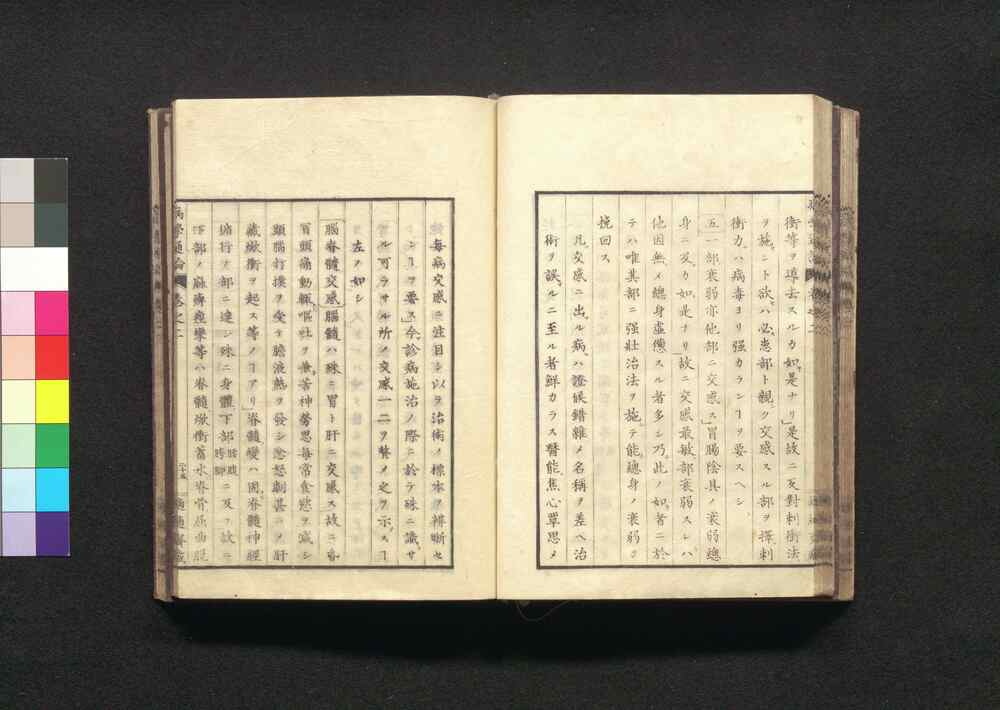 衝等ヲ導去スルカ如是ナリ」是故ニ反對刺衝法
ヲ施ント欲ハ必患部ト親ク交感スル部ヲ擇刺
衝力ハ病毒ヨリ强カランヿヲ要スヘシ
五一部衰弱亦他部ニ交感ス」胃腸陰具ノ衰弱總
身ニ及カ如是ナリ」故ニ交感最敏部衰弱スレハ
他因無メ總身虛憊スル者多シ乃此ノ如者ニ於
テハ唯其部ニ强壯治法ヲ施テ能總身ノ衰弱ヲ
挽回ス
凡交感ニ出ル病ハ證候錯雜メ名稱ヲ差ヘ治
術ヲ誤ルニ至ル者鮮カラス醫能焦心覃思メ
每病交感ニ注目シ以ヲ治術ノ標本ヲ辨晰セ
ンヿヲ要ス」今診病施治ノ際ニ於テ殊ニ識サ
ル可ラサル所ノ交感一二ヲ贅メ定ヲ示スヿ
左ノ如シ
腦脊髓交感腦髓ハ殊ニ胃ト肝ニ交感ス故ニ
胃頭痛動輒嘔吐ヲ兼苦神勞思每常食慾ヲ減シ
顚腦打撲ヲ受テ膽液熱ヲ發シ忿怒劇甚ニメ肝
藏焮衝ヲ起ス等ノヿアリ」脊髓變ハ固脊髓神經
ノ部ニ達シ殊ニ身體下部ニ及フ故ニ
下部ノ麻痹痙攣等ハ脊髓焮衝蓄水脊骨屈曲
病學通論 卷之二
二十五